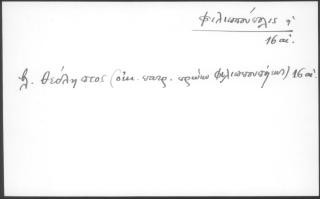 Φιλιππούπολις
16 αἰ.
βλ. Θεόληπτος (οἰκ. πατρ. πρώην Φιλιππουπόλεως) 16 αἰ.